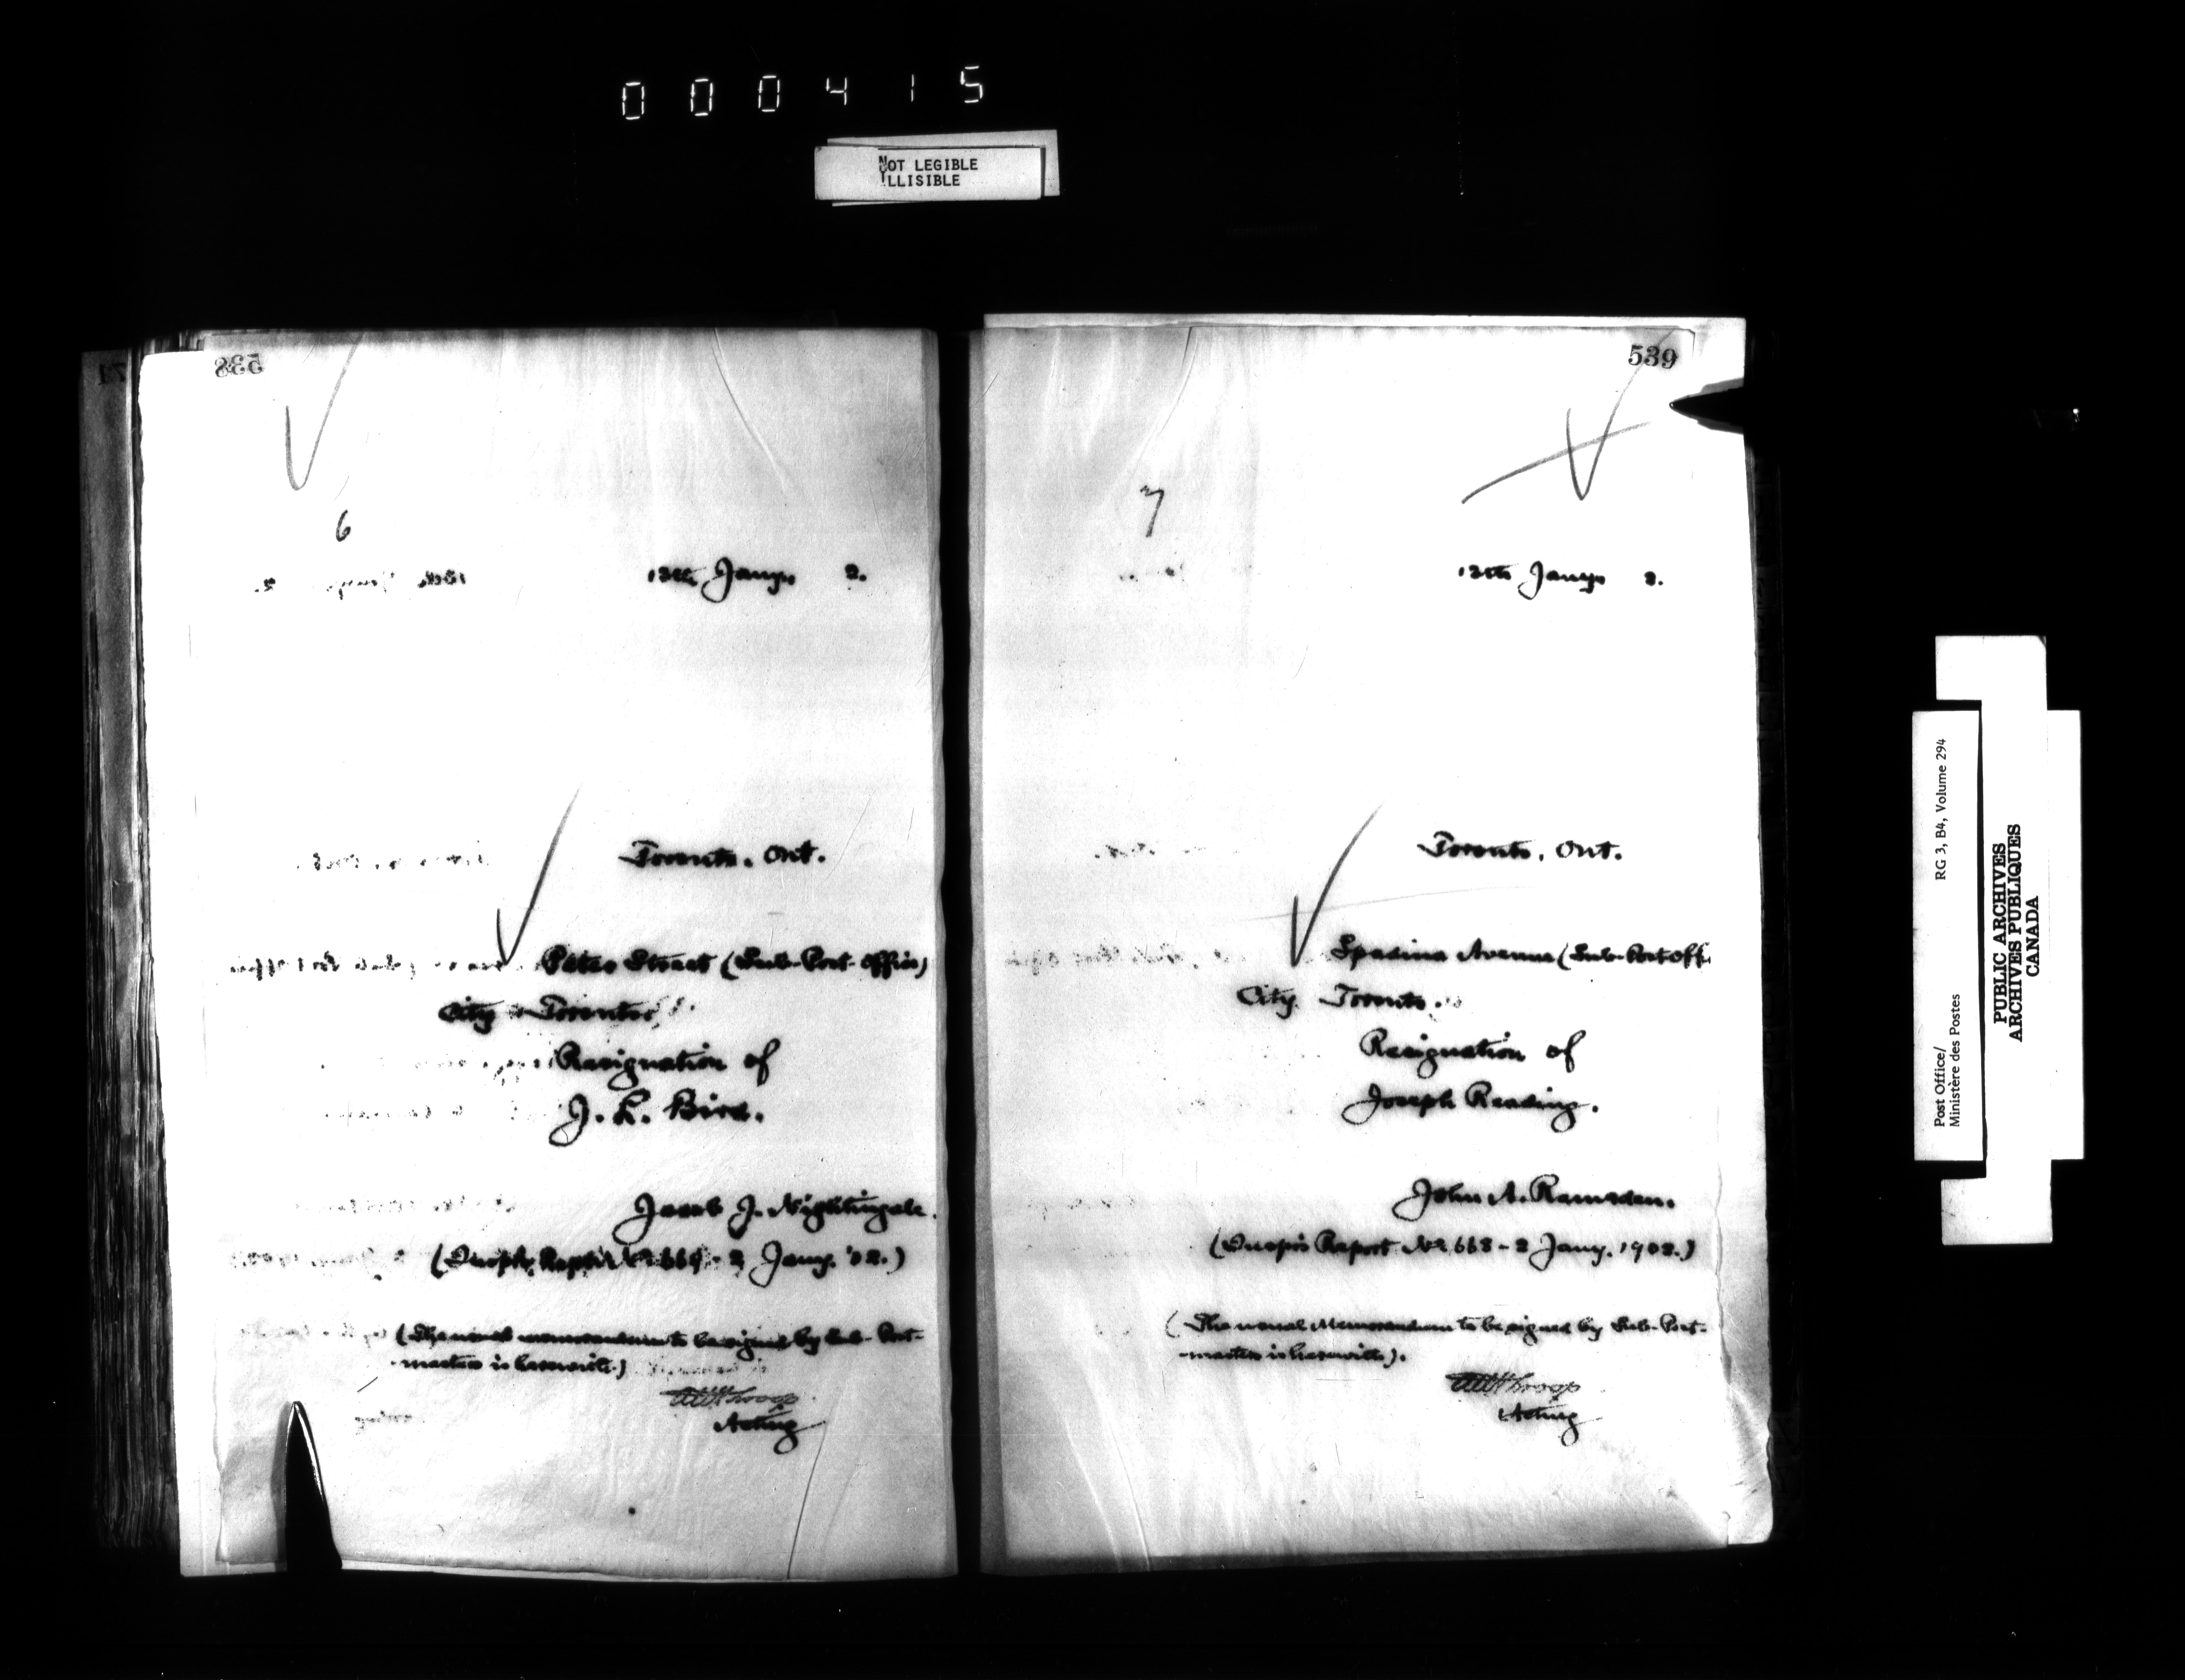 000415
NOT LEGIBLE
ILLISIBLE
538
6
13th Jany. 2.
Toronto, Ont.
Peter Street (Sub-Post-Office)
City Toronto.
Resignation of
J. K. Bird.
Jacob J. Nightingale.
(Insp's Report No 669 - 2 Jany. '02.)
(The usual memorandum to be signed by Sub-Post-
-master is herewith.)
Acting
539
7
13th Jany 2.
Toronto, Ont.
Spadina Avenue (Sub-Post Offi
City Toronto.
Resignation of
Joseph Reading.
John A. Ramsden.
(Insp's Report No 668 - 2 Jany. 1902.)
(The usual Memorandum to be signed by Sub-Post-
-master is herewith).
Acting
Post Office/
Ministère des Postes
RG 3, B4, Volume 294
PUBLIC ARCHIVES
ARCHIVES PUBLIQUES
CANADA